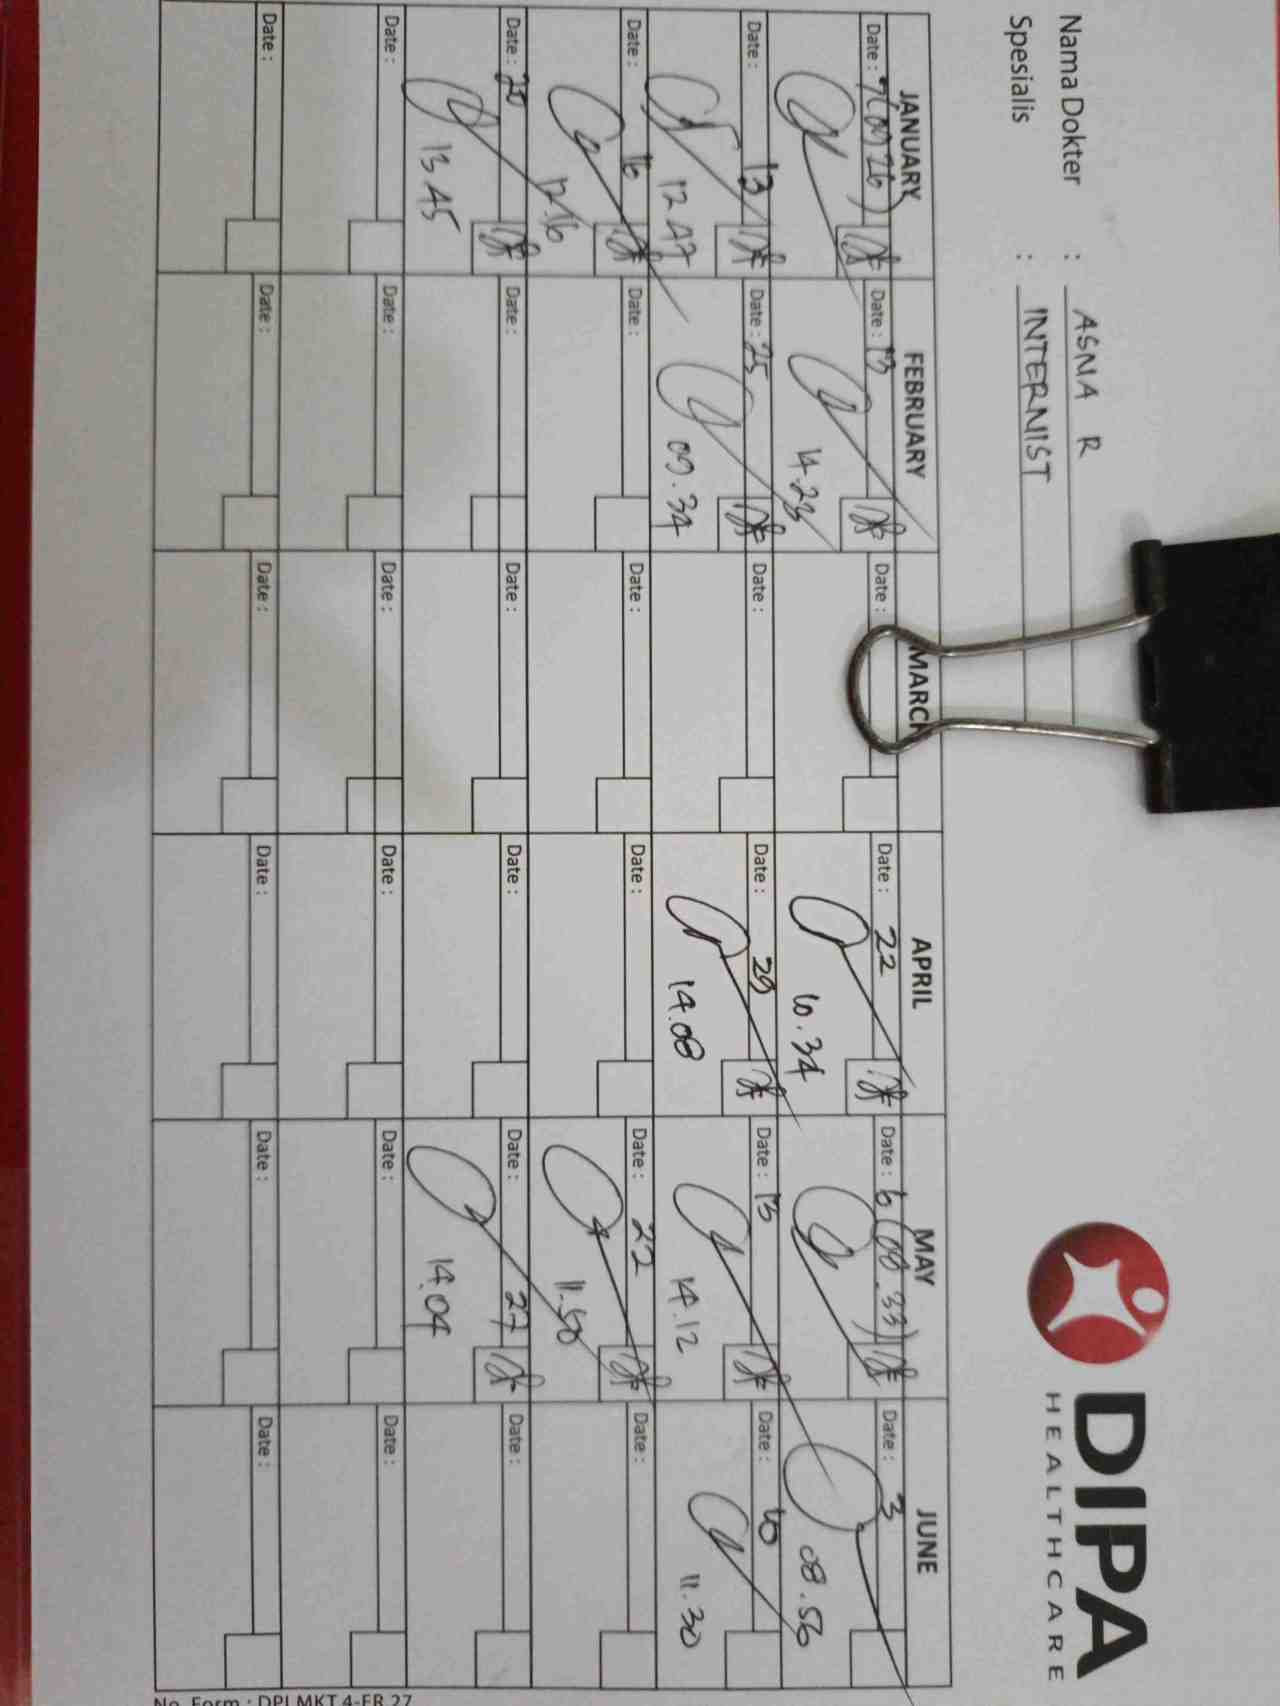 DIPA
HEALTHCARE
Nama Dokter : ASNA R
Spesialis : INTERNIST
JANUARY FEBRUARY MARCH APRIL MAY JUNE
Date : 7(09.26) Date : 13 Date : Date : 22 Date : 6 (08.33) Date : 3
14.23 10.34 08.56
Date : 13 Date : 25 Date : Date : 29 Date : 13 Date : 10
12.47 09.34 14.08 14.12 11.30
Date : 16 Date : Date : Date : Date : 22 Date :
12.16 11.50
Date : 20 Date : Date : Date : Date : 27 Date :
13.45 14.04
Date : Date : Date : Date : Date : Date :
Date : Date : Date : Date : Date : Date :
No. Form : DPI.MKT 4-FR.27